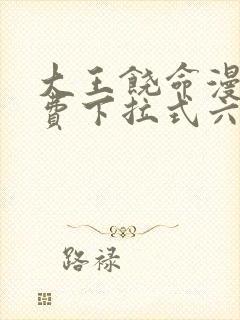 大王饶命漫
费下拉式六
路禄